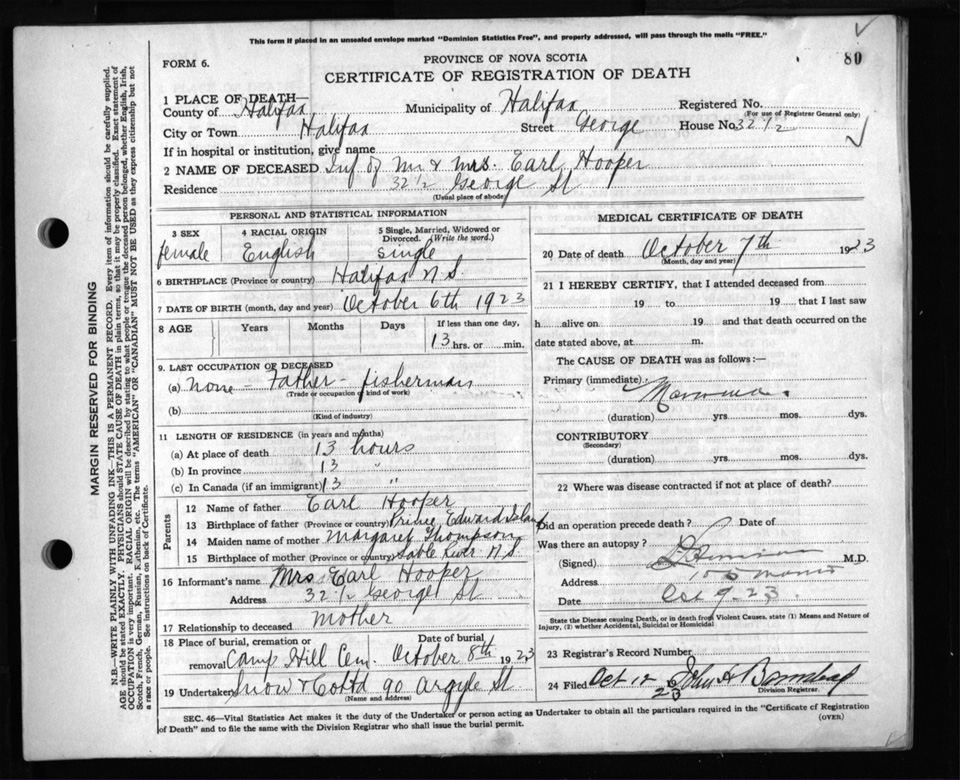 This form if placed in an unsealed envelope marked "Dominion Statistics Free", and properly addressed, will pass through the mails "FREE."
80
FORM 6.
PROVINCE OF NOVA SCOTIA
CERTIFICATE OF REGISTRATION OF DEATH
1 PLACE OF DEATH—
County of Halifax Municipality of Halifax Registered No.
(For use of Registrar General only)
City or Town Halifax Street George House No. 32 1/2
If in hospital or institution, give name
2 NAME OF DECEASED Inf of Mr & Mrs. Earl Hooper
Residence 32 1/2 George St
(Usual place of abode)
PERSONAL AND STATISTICAL INFORMATION
3 SEX 4 RACIAL ORIGIN 5 Single, Married, Widowed or Divorced. (Write the word.)
female English single
6 BIRTHPLACE (Province or country) Halifax N.S.
7 DATE OF BIRTH (month, day and year) October 6th 1923
8 AGE Years Months Days If less than one day,
13 hrs. or min.
9. LAST OCCUPATION OF DECEASED
(a) none - Father - fisherman
(Trade or occupation or kind of work)
(b)
(Kind of industry)
11 LENGTH OF RESIDENCE (in years and months)
(a) At place of death 13 hours
(b) In province 13 "
(c) In Canada (if an immigrant) 13 "
Parents
12 Name of father Earl Hooper
13 Birthplace of father (Province or country) Prince Edward Island
14 Maiden name of mother Margaret Thompson
15 Birthplace of mother (Province or country) Sable River N.S.
16 Informant's name Mrs Earl Hooper
Address 32 1/2 George St
17 Relationship to deceased mother
18 Place of burial, cremation or removal Camp Hill Cem. Date of burial October 8th 1923
19 Undertaker Snow & Co Ltd 90 Argyle St
(Name and address)
MEDICAL CERTIFICATE OF DEATH
20 Date of death October 7th 1923
(Month, day and year)
21 I HEREBY CERTIFY, that I attended deceased from
19 to 19 that I last saw
h alive on 19 and that death occurred on the
date stated above, at m.
The CAUSE OF DEATH was as follows:—
Primary (immediate)
(duration) yrs. mos. dys.
CONTRIBUTORY
(Secondary)
(duration) yrs. mos. dys.
22 Where was disease contracted if not at place of death?
Did an operation precede death? Date of
Was there an autopsy?
(Signed) M.D.
Address
Date Oct 9-23
State the Disease causing Death, or in death from Violent Causes, state (1) Means and Nature of Injury, (2) whether Accidental, Suicidal or Homicidal
23 Registrar's Record Number
24 Filed Oct 12 23 John A
Division Registrar.
SEC. 46—Vital Statistics Act makes it the duty of the Undertaker or person acting as Undertaker to obtain all the particulars required in the "Certificate of Registration of Death" and to file the same with the Division Registrar who shall issue the burial permit.
(OVER)
MARGIN RESERVED FOR BINDING
N.B.—WRITE PLAINLY WITH UNFADING INK—THIS IS A PERMANENT RECORD. Every item of information should be carefully supplied.
AGE should be stated EXACTLY. PHYSICIANS should STATE CAUSE OF DEATH in plain terms, so that it may be properly classified. Exact statement of
OCCUPATION is very important. RACIAL ORIGIN will be described by stating to what people or tongue the deceased person belonged, whether English, Irish,
Scotch, French, German, Russian, Ruthenian, etc. The terms "AMERICAN" OR "CANADIAN" MUST NOT BE USED as they express citizenship but not
a race or people. See instructions on back of Certificate.